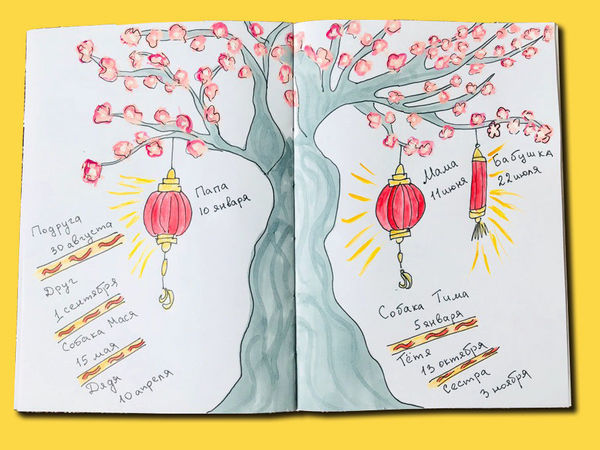 Папа
10 января
Подруга
30 августа
Друг
1 сентября
Собака Мася
15 мая
Дядя
10 апреля
Мама
11 июня
Бабушка
22 июля
Собака Тима
5 января
Тётя
13 октября
Сестра
3 ноября